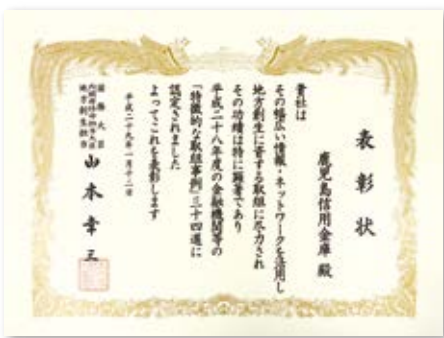 表彰状
鹿児島信用金庫 殿
貴社は
その幅広い情報・ネットワークを活用し
地方創生に資する取組に尽力され
その功績は特に顕著であり
平成二十八年度の金融機関等の
「特徴的な取組事例」三十四選に
認定されました
よってこれを表彰します
平成二十九年一月十二日
国務大臣
内閣府特命担当大臣
地方創生担当
山本幸三